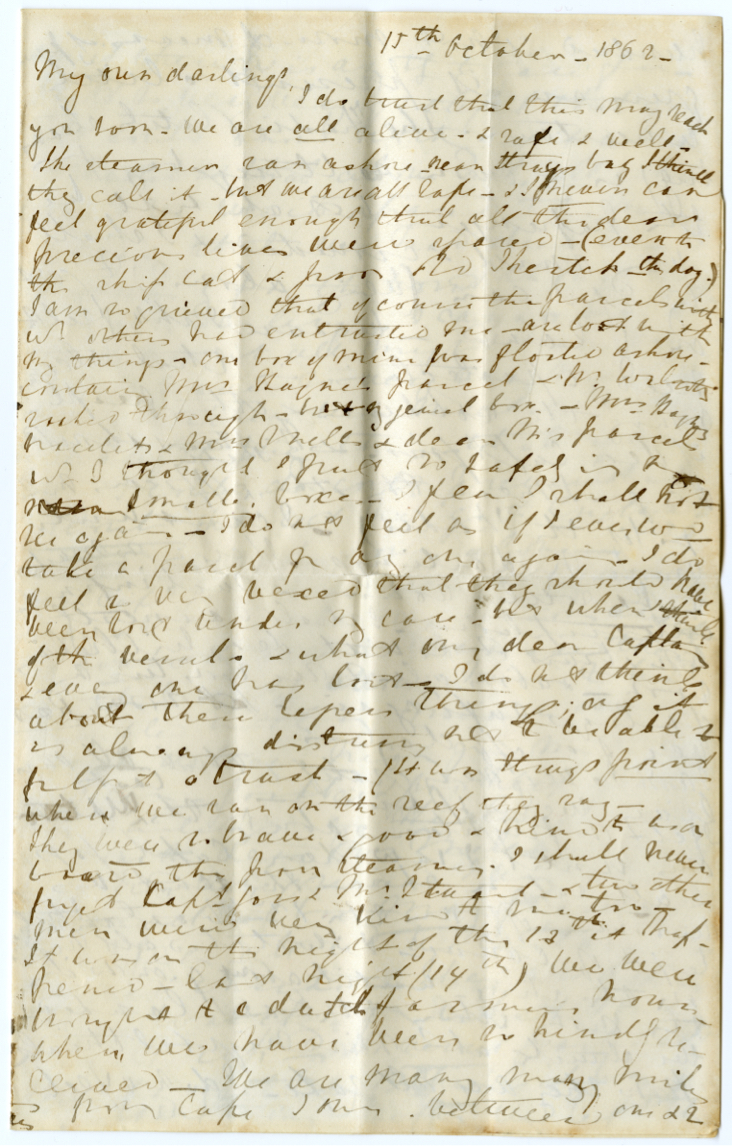 15th October - 1862 -
My own darlings
I do trust that this may reach
you soon - We are all alive - & safe & well -
The steamer ran ashore near Struys bay I think
they call it - but we are all safe - & I never can
feel grateful enough that all the dear
precious lives were spared - (even to
the ship cat & poor old the dog)
I am so grieved that of course the parcels
others had entrusted me - are lost with
my things - one box of mine was floated ashore -
containing Mrs parcel & Mr
soaked through - but my jewel box - Mrs
bracelet & Mrs Mills & dear parcel
wh I thought I put so safely in my
small box - I fear I shall not
see again - I do not feel as if I ever
take a parcel for any one again - I do
feel so very vexed that they should have
been lost under my care - but when I think
of the vessel & what our dear Captain
& every one has lost - I do not think
about these things; only it
is always distressing not to be able to
fulfil a trust - (It was Struys point
where we ran on the reef they say -
They were so brave & good & kind to us on
board the poor steamer. I shall never
forget Capt & Mr Stuart - & two other
men were very kind to me too -
It was on the night of the 13th it hap-
pened - last night (14th) we were
brought to a dutch farmers house
where we have been so kindly re-
ceived - We are many many miles
from Cape Town between one & 2